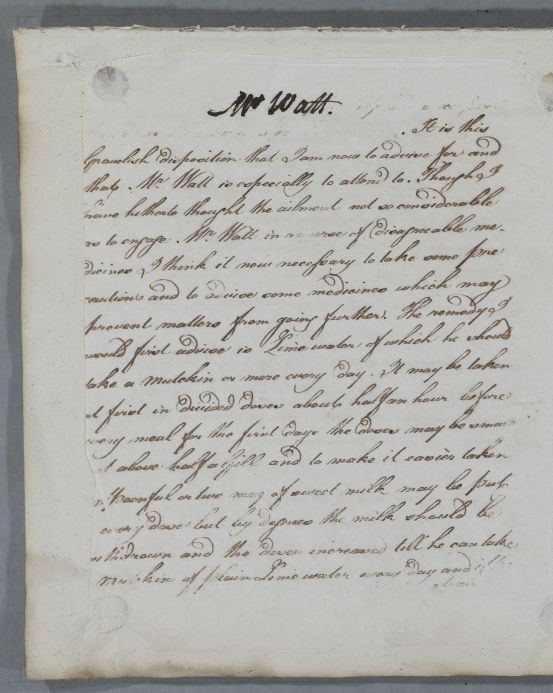 Mr Watt.
It is this
Gravelish disposition that I am now to advise for and
that Mr Watt is especially to attend to. Though I
have hitherto thought the ailment not so considerable
as to engage Mr Watt in a course of disagreeable me-
dicines I think it now necessary to take some pre
cautions and to advise some medicines which may
prevent matters from going further. The remedy I
would first advise is Lime water of which he should
take a mutchkin or more every day. It may be taken
at first in divided doses about half an hour before
every meal for the first days the doses may be small
t above half a gill and to make it easier taken
Spoonful or two of sweet milk may be put
every dose but by degrees the milk should be
withdrawn and the doses increased till he can take
mutchkin of plain Lime water every day and if